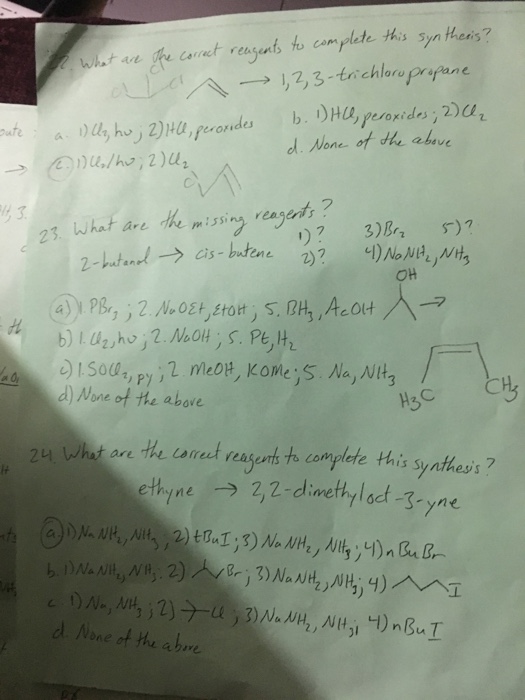 What are the correct reagents to complete this synthesis?
Cl
Cl
→ 1,2,3-trichloropropane
a. 1) Cl2, hν; 2) HCl, peroxides
b. 1) HCl, peroxides; 2) Cl2
c. 1) Cl2/hν; 2) Cl2
d. None of the above
Cl
23. What are the missing reagents?
1) ? 3) Br2 5) ?
2-butanol → cis-butene 2) ? 4) NaNH2, NH3
OH
a) 1. PBr3; 2. NaOEt, EtOH; 5. BH3, AcOH
→
b) 1. Cl2, hν; 2. NaOH; 5. Pt, H2
c) 1. SOCl2, py; 2. MeOH, KOMe; 5. Na, NH3
H3C CH3
d) None of the above
24. What are the correct reagents to complete this synthesis?
ethyne → 2,2-dimethyloct-3-yne
a. 1) NaNH2, NH3, 2) tBuI; 3) NaNH2, NH3; 4) nBuBr
b. 1) NaNH2, NH3; 2) Br; 3) NaNH2, NH3; 4) I
c. 1) Na, NH3; 2) Cl; 3) NaNH2, NH3; 4) nBuI
d. None of the above